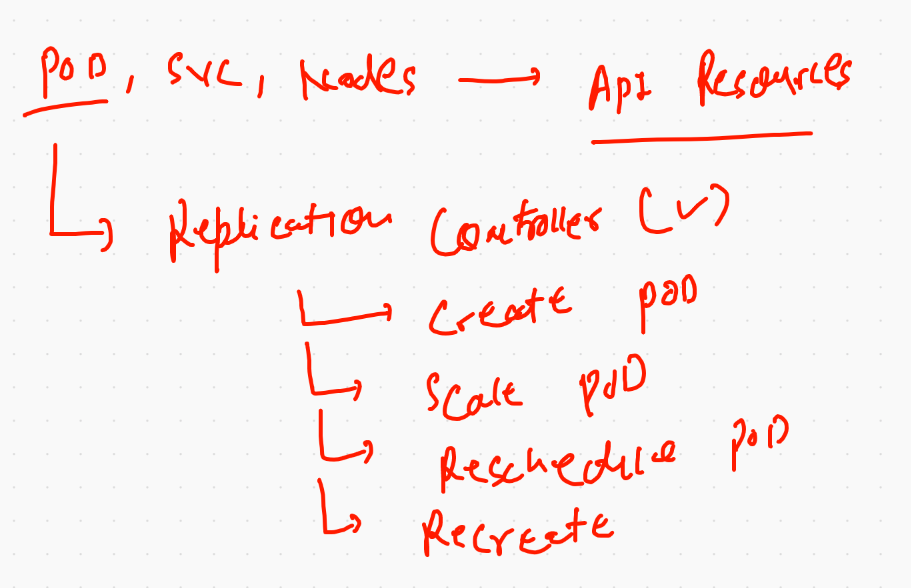 POD, SVC, Nodes → Api Resources
Replication Controller (✓)
Create POD
Scale POD
Reschedule POD
Recreate